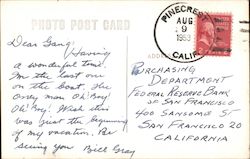 PHOTO POST CARD
PINECREST
AUG
9
1953
CALIF.
Dear Gang,
Having
a wonderful time.
I'm the last one
on the boat, the
only man Oh Boy!
Oh Boy! Wish this
was just the beginning
of my vacation. Be
seeing you Bill Gray
ADDRESS
PURCHASING
DEPARTMENT
FEDERAL RESERVE BANK
OF SAN FRANCISCO
400 SANSOME ST
SAN FRANCISCO 20
CALIFORNIA